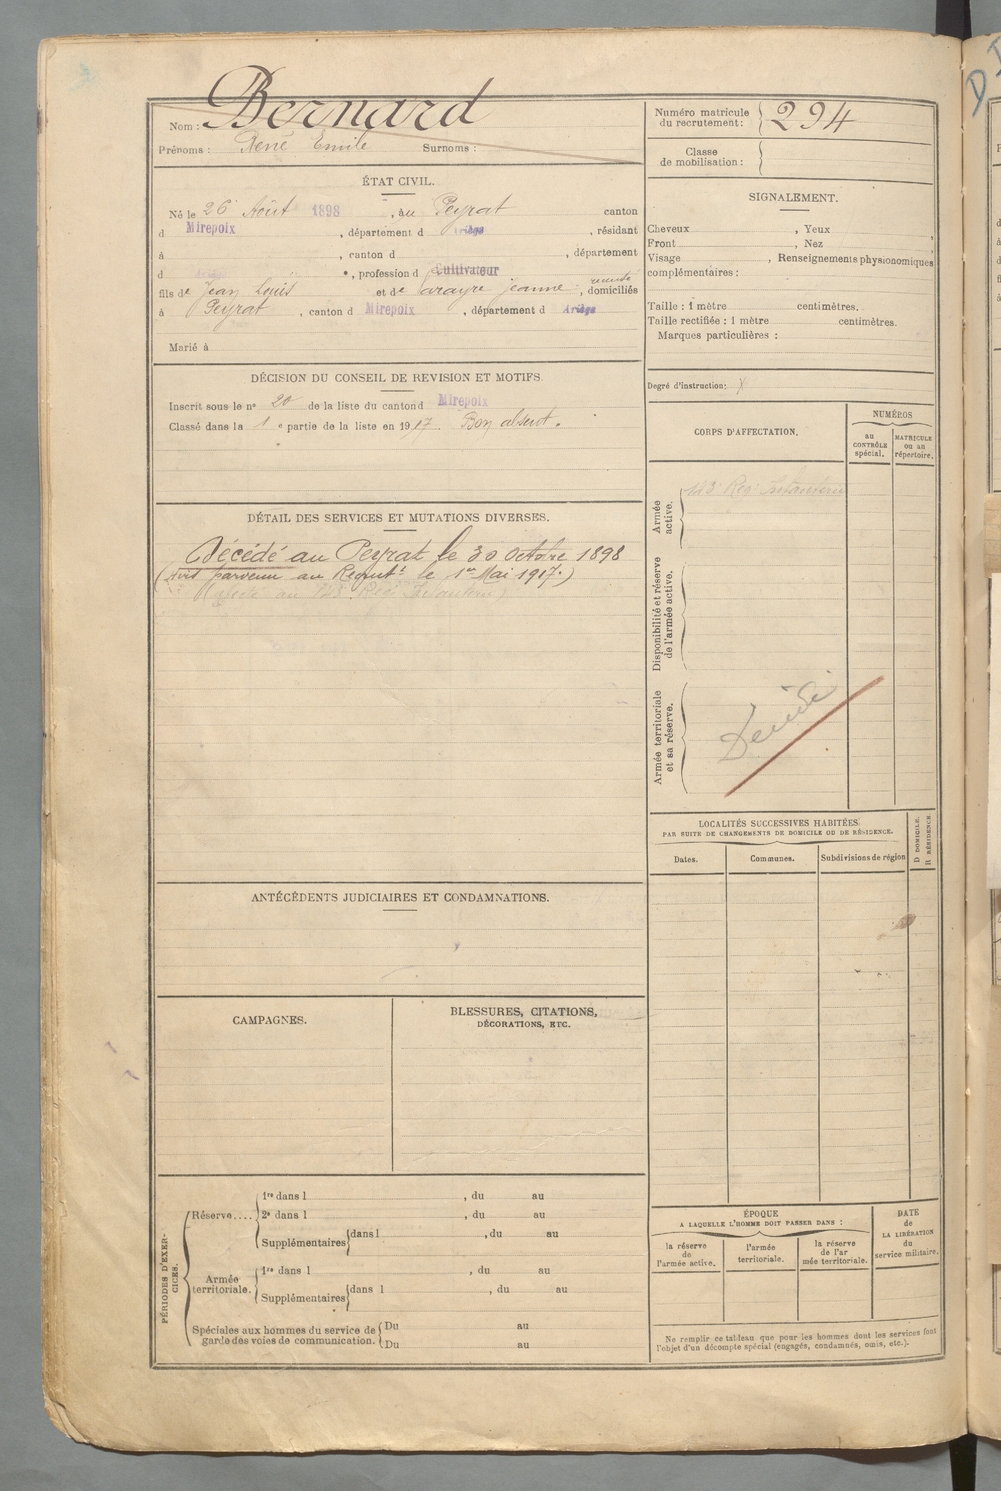 Nom : Bernard
Prénoms : René Emile Surnoms :
Numéro matricule du recrutement : 294
Classe de mobilisation :
ÉTAT CIVIL.
Né le 26 Août 1898, au Peyrat canton
d Mirepoix, département d Ariège, résidant
à , canton d , département
d , profession d Cultivateur
fils de Jean Louis et de jeanne, domiciliés
à Peyrat, canton d Mirepoix, département d Ariège
Marié à
SIGNALEMENT.
Cheveux , Yeux ,
Front , Nez
Visage , Renseignements physionomiques
complémentaires :
Taille : 1 mètre centimètres.
Taille rectifiée : 1 mètre centimètres.
Marques particulières :
Degré d'instruction : X
DÉCISION DU CONSEIL DE REVISION ET MOTIFS.
Inscrit sous le n° 20 de la liste du canton d Mirepoix
Classé dans la 1e partie de la liste en 1917. Bon absent.
DÉTAIL DES SERVICES ET MUTATIONS DIVERSES.
Décédé au Peyrat le 30 Octobre 1898
(avis parvenu au Recrutt le 1er Mai 1917.)
CORPS D'AFFECTATION.
NUMÉROS
au CONTRÔLE spécial.
MATRICULE ou au répertoire.
Armée active.
143 Reg Infanterie
Disponibilité et réserve de l'armée active.
Armée territoriale et sa réserve.
Décédé
LOCALITÉS SUCCESSIVES HABITÉES
PAR SUITE DE CHANGEMENTS DE DOMICILE OU DE RÉSIDENCE.
Dates.
Communes.
Subdivisions de région
D DOMICILE.
R RÉSIDENCE.
ANTÉCÉDENTS JUDICIAIRES ET CONDAMNATIONS.
CAMPAGNES.
BLESSURES, CITATIONS,
DÉCORATIONS, ETC.
PÉRIODES D'EXERCICES.
Réserve....
1re dans l , du au
2e dans l , du au
Supplémentaires dans l , du au
Armée territoriale.
1re dans l , du au
Supplémentaires dans l , du au
Spéciales aux hommes du service de garde des voies de communication.
Du au
Du au
ÉPOQUE
A LAQUELLE L'HOMME DOIT PASSER DANS :
la réserve de l'armée active.
l'armée territoriale.
la réserve de l'armée territoriale.
DATE de LA LIBÉRATION du service militaire.
Ne remplir ce tableau que pour les hommes dont les services font
l'objet d'un décompte spécial (engagés, condamnés, omis, etc.).